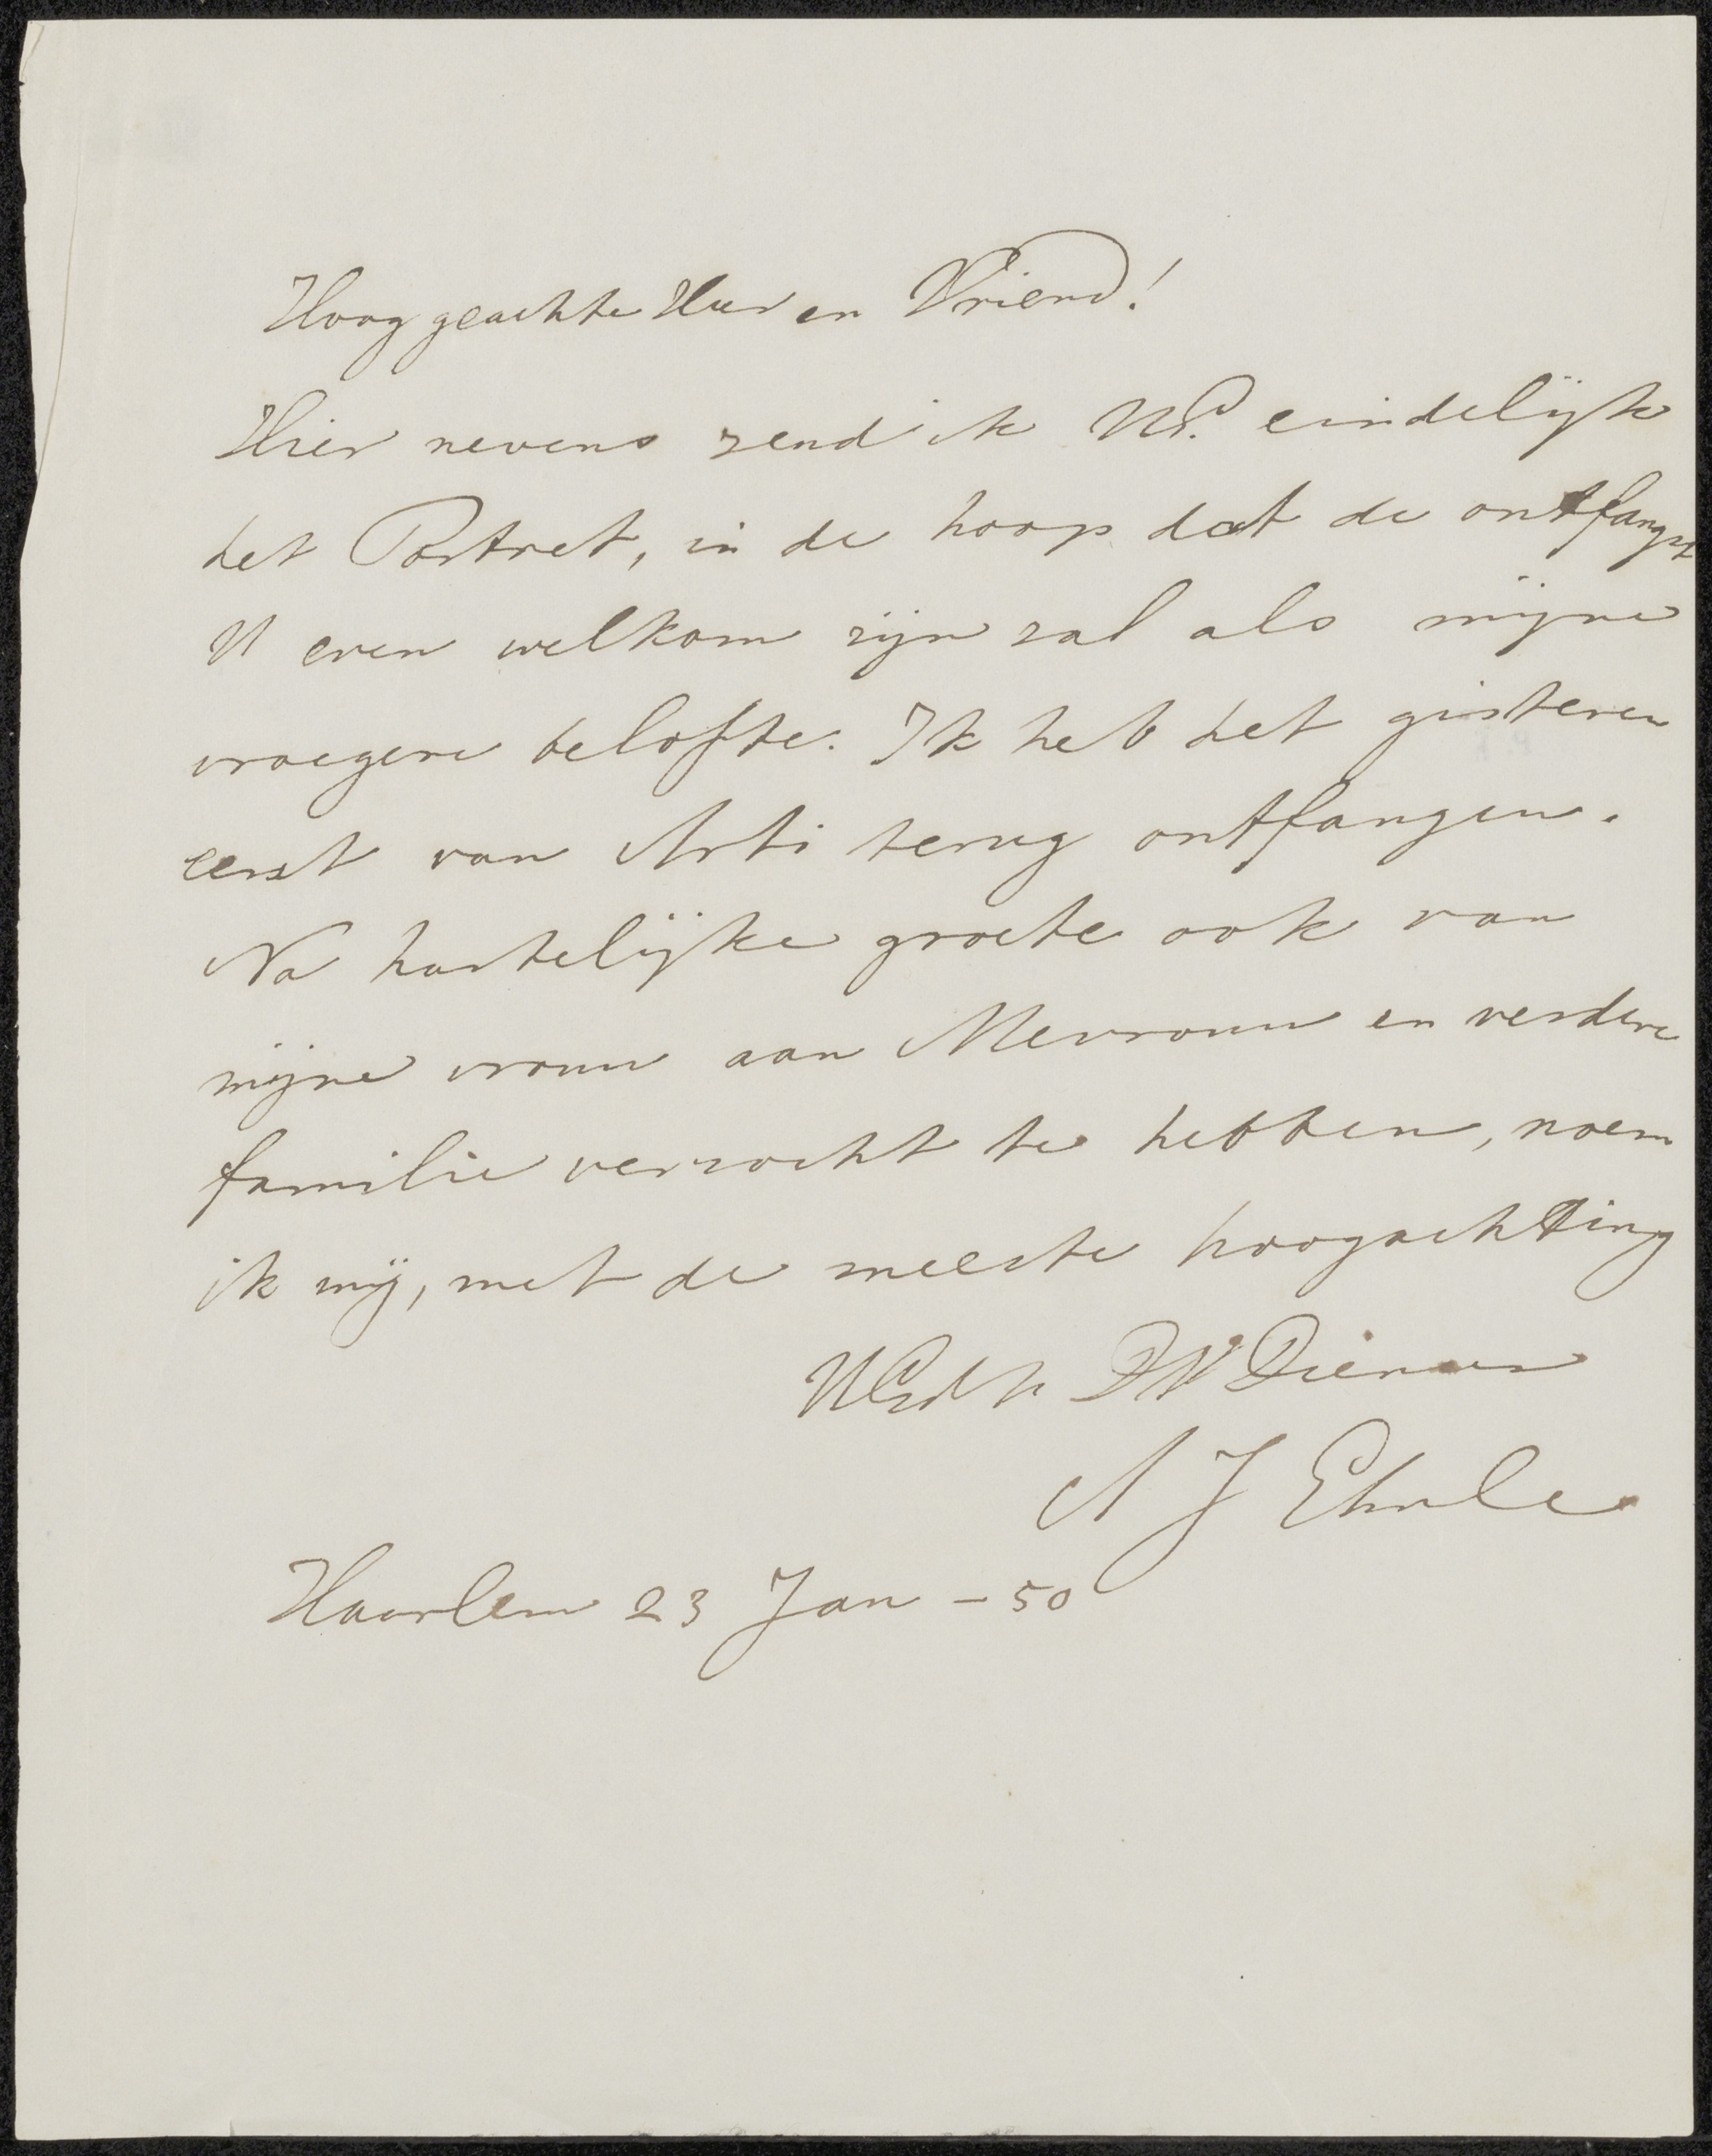 Hoog geachte Heer en Vriend!
Hier nevens zend ik UE. eindelijk
het Portret, in de hoop dat de ontfangst
U even welkom zijn zal als mijne
vroegere belofte. Ik heb het gisteren
eerst van Arti terug ontfangen.
Na hartelijke groete ook van
mijne vrouw aan Mevrouw en verdere
familie verzocht te hebben, noem
ik mij, met de meeste hoogachting
DW Dienaar
A J Ehnle
Haarlem 23 Jan - 50